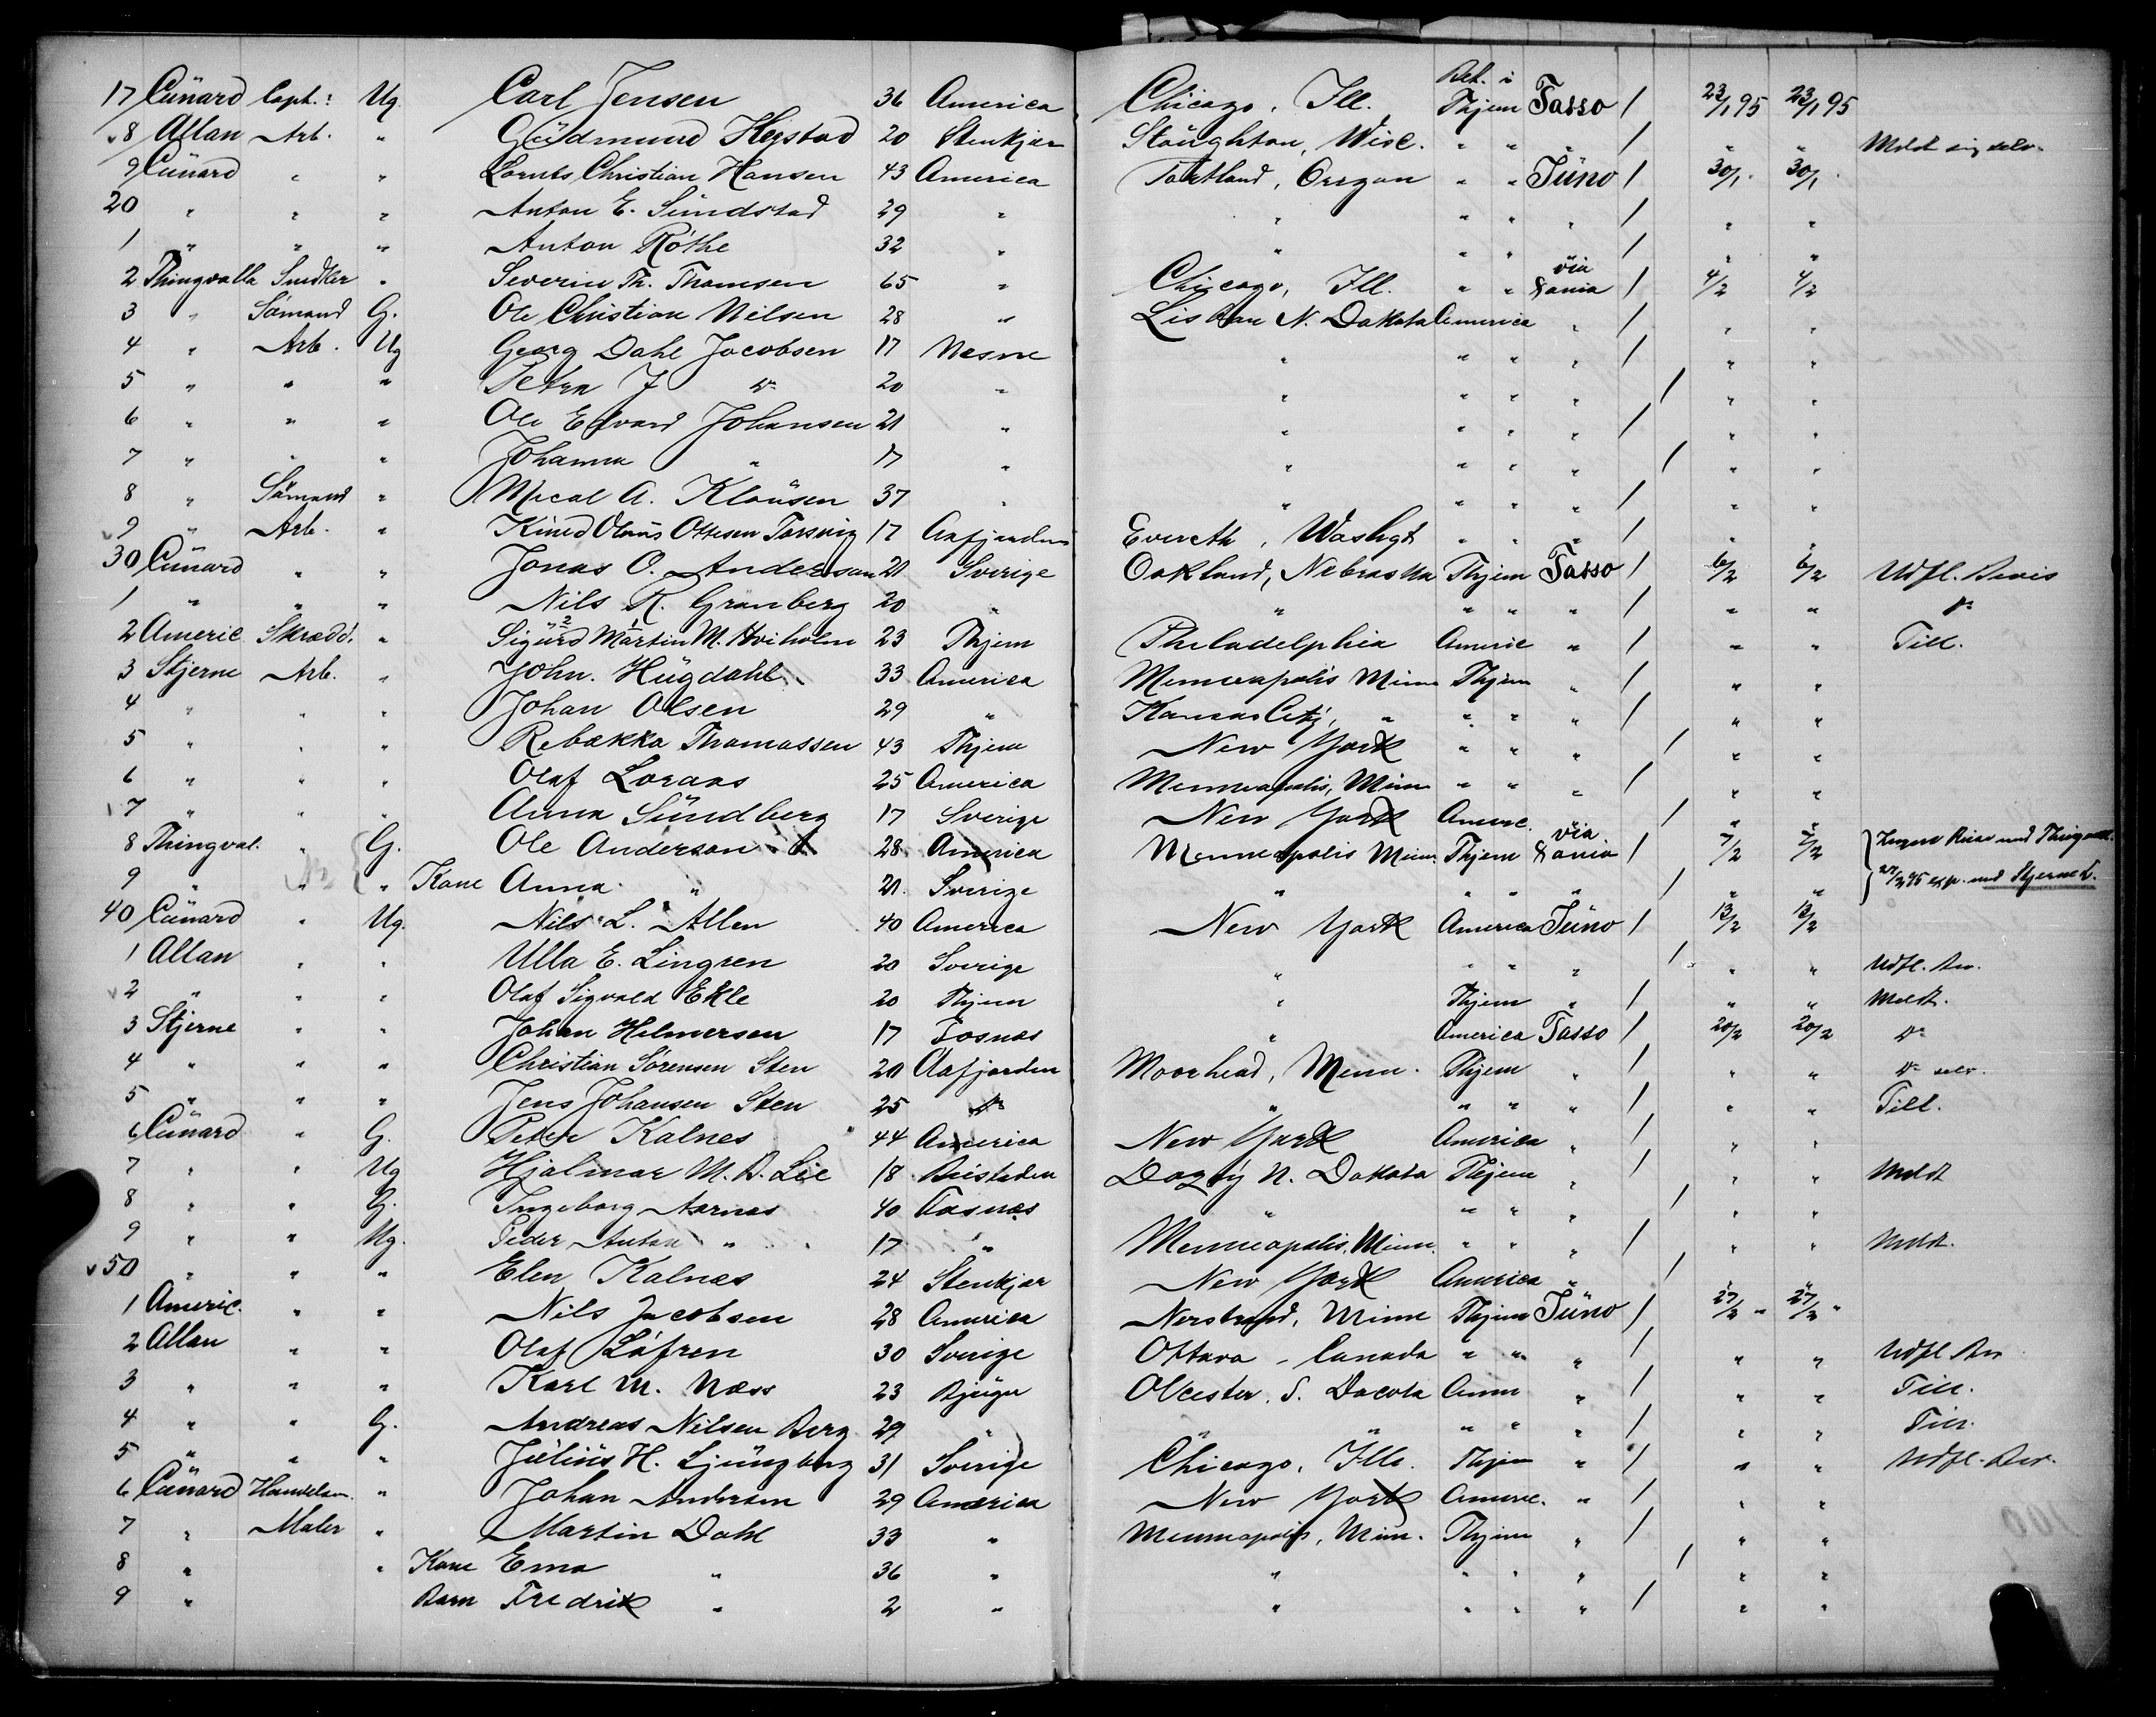 Bet. i
17 Cunard Capt. Ug. Carl Jensen 36 America Chicago, Ill. Thjem Tasso 1 23/1 95 23/1 95
8 Allan Arb. " Gudmund Hegstad 20 Stenkjær Stoughton, Wisc. " " " 1 " " Meldt sig selv.
9 Cunard " " Lornts Christian Hansen 43 America Portland, Oregon " " Juno 1 30/1 30/1
20 " " " Anton E. Sundstad 29 " " " " " 1 " "
1 " " " Anton Röthe 32 " " " " " 1 " "
2 Thingvalla Snedker " Severin Th. Thomsen 65 " Chicago, Ill. " " via Xania 1 4/2 4/2
3 " Sømand G. Ole Christian Nilsen 28 " Lisbon N. Dakota America " 1 " "
4 " Arb. Ug Georg Dahl Jacobsen 17 Næsne " " " " 1 " "
5 " " " Petra J do 20 " " " " " 1 " "
6 " " " Ole Edvard Johansen 21 " " " " " 1 " "
7 " " " Johanna " 17 " " " " " 1 " "
8 " Sømand " Mical A. Klausen 37 " " " " " 1 " "
9 " Arb. " Knud Olaus Ottesen Tarsvig 17 Aafjorden Evereth, Washgt " " " 1 " "
30 Cunard " " Jonas O. Anderson 21 Sverige Oakland, Nebraska Thjem Tasso 1 6/2 6/2 Udfl. Bevis
1 " " " Nils R. Granberg 20 " " " " " 1 " " do
2 Americ Skrædd. " Sigurd Martin M. Hviholm 23 Thjem Philadelphia Americ " 1 " " Till.
3 Stjerne Arb. " John. Hugdahl 33 America Minneapolis Minn Thjem " 1 " "
4 " " " Johan Olsen 29 " Kansas City, " " " " 1 " "
5 " " " Rebekka Thomassen 43 Thjem New York " " " 1 " "
6 " " " Olaf Loraas 25 America Minneapolis, Minn " " " 1 " "
7 " " " Anna Sundberg 17 Sverige New York Americ. " 1 " "
8 Thingval. " G. Ole Anderson 28 America Minneapolis Minn. Thjem via Xania 1 7/2 7/2
9 " " " Kone Anna " 21 Sverige " " " " 1 " " 27/2 95 exp. med Stjerne L.
40 Cunard " Ug. Nils L. Allen 40 America New York America Juno 1 13/2 13/2
1 Allan " " Ulla E. Lingren 20 Sverige " " " " 1 " " Udfl. Bev.
2 " " " Olaf Sigvald Ekle 20 Thjem " Thjem " 1 " " Meldt.
3 Stjerne " " Johan Helmersen 17 Fosnæs " America Tasso 1 20/2 20/2 do
4 " " " Christian Sörensen Sten 20 Aafjorden Moorhead, Minn. Thjem " 1 " " do selv.
5 " " " Jens Johansen Sten 25 do " " " " 1 " " Till.
6 Cunard " G. Peter Kalnes 44 America New York America " 1 " "
7 " " Ug Hjalmar M. B. Lie 18 Beistaden Dazey N. Dakota Thjem " 1 " " Meldt
8 " " G. Ingeborg Aarnæs 40 Fosnæs " " " " 1 " "
9 " " Ug. Peder Anton " 17 " Minneapolis, Minn. " " " 1 " " Meldt.
50 " " " Elen Kalnæs 24 Stenkjær New York America " 1
1 Americ. " " Nils Jacobsen 28 America Nerstrand, Minne Thjem Juno 1 27/2 " 27/2 "
2 Allan " " Olaf Löfren 30 Sverige Ottava - Canada " " " 1 " " Udfl Bev
3 " " " Karl M. Næss 23 Bjugn Alcester. S. Dacota Amer " 1 " " Till.
4 " " G. Andreas Nilsen Berg 27 " " " " " 1 " " Till.
5 " " " Julius H. Ljungberg 31 Sverige Chicago, Ills. Thjem " 1 " " Udfl. Bev.
6 Cunard Handelsm. " Johan Andersen 29 America New York Americ. " 1 " "
7 " Maler " Martin Dahl 33 " Minneapolis, Minn. Thjem " 1 " "
8 " " Kone Ema " 36 " " " " " 1 " "
9 " Barn Fredrik " 2 " " " " " 1 " "